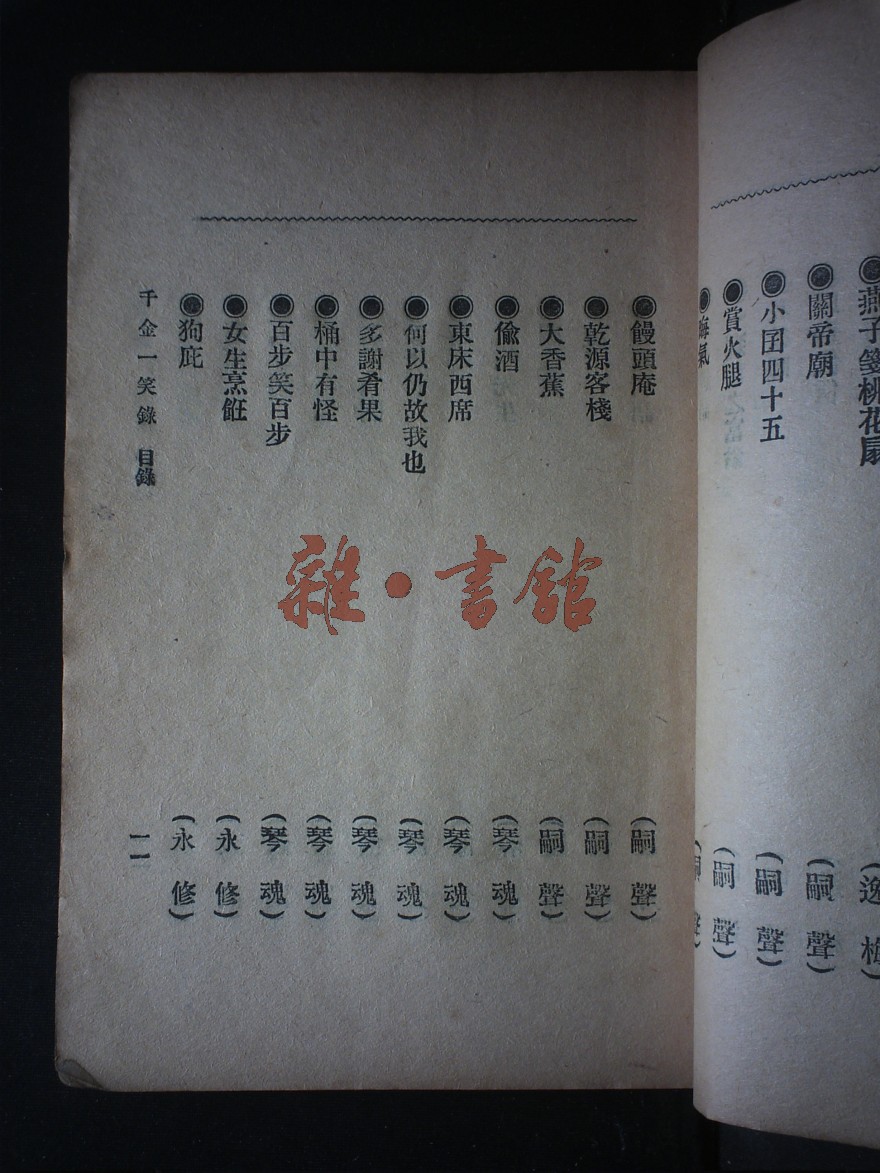 ◉燕子箋桃花扇 (逸梅)
◉關帝廟 (嗣聲)
◉小囝四十五 (嗣聲)
◉賞火腿 (嗣聲)
◉晦氣 (嗣聲)
◉饅頭庵 (嗣聲)
◉乾源客棧 (嗣聲)
◉大香蕉 (嗣聲)
◉偸酒 (琴魂)
◉東床西席 (琴魂)
◉何以仍故我也 (琴魂)
◉多謝肴果 (琴魂)
◉桶中有怪 (琴魂)
◉百步笑百步 (琴魂)
◉女生烹飪 (永修)
◉狗庇 (永修)
千金一笑錄 目錄 一一
雜·書館